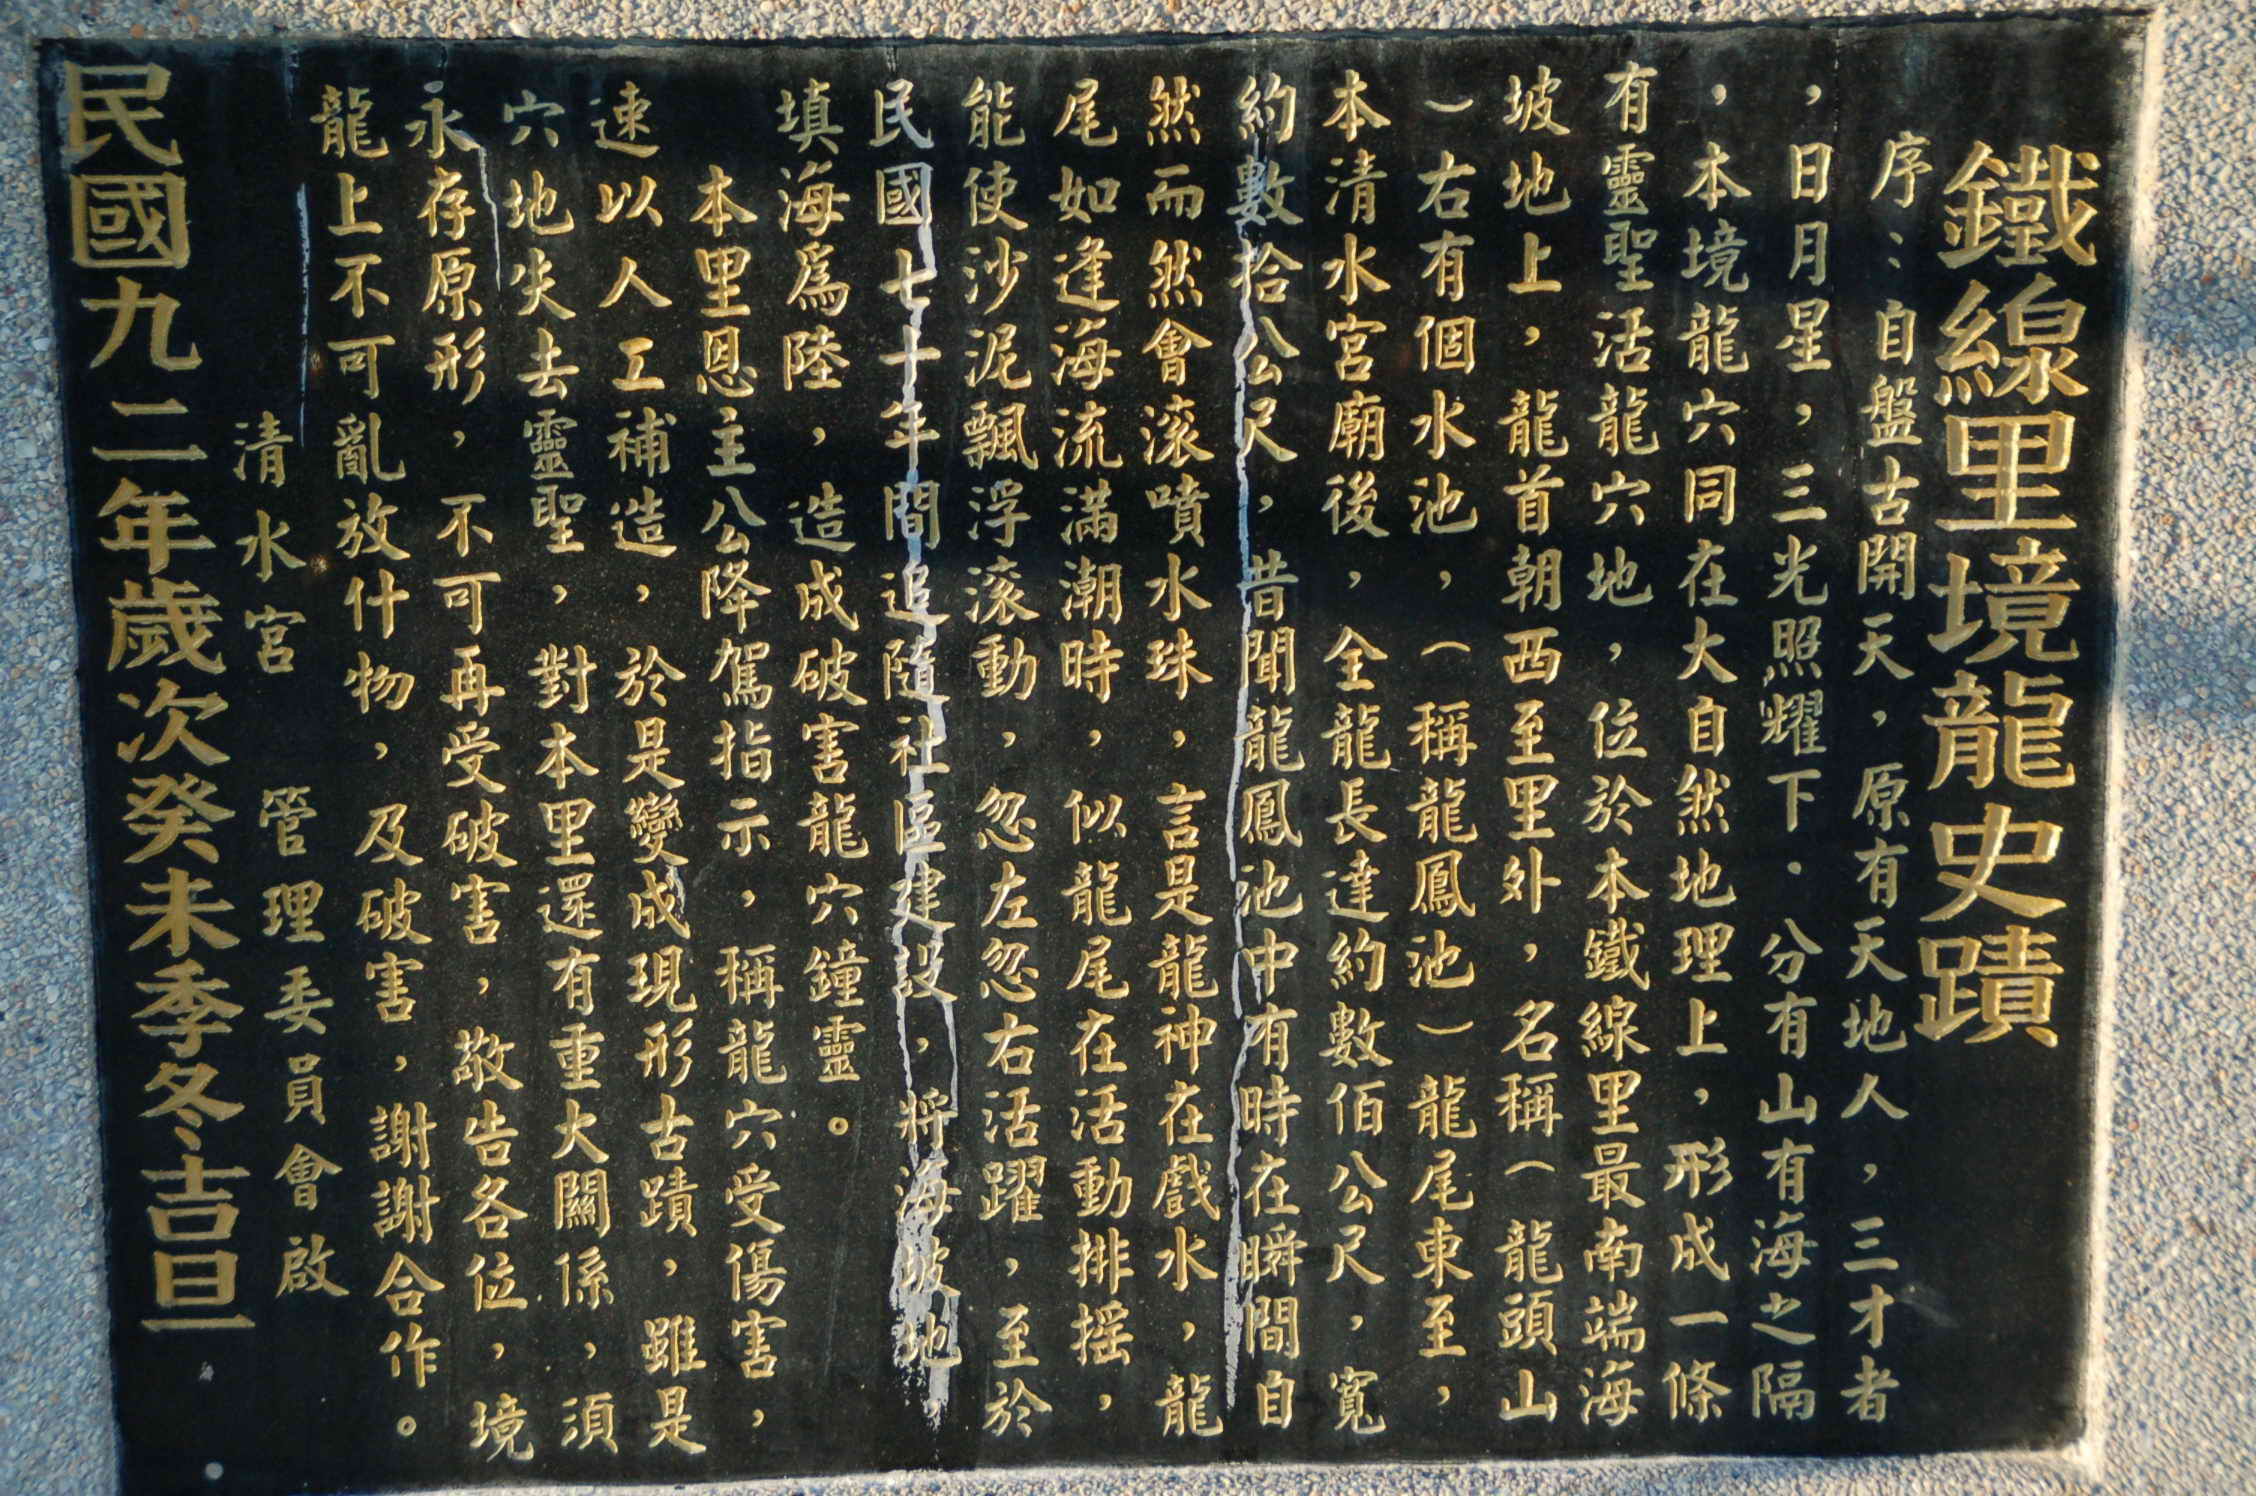 鐵線里境龍史蹟
序：自盤古開天，原有天地人，三才者
，日月星，三光照耀下．分有山有海之隔
，本境龍穴同在大自然地理上，形成一條
有靈聖活龍穴地，位於本鐵線里最南端海
坡地上，龍首朝西至里外，名稱（龍頭山
）右有個水池，（稱龍鳳池）龍尾東至，
本清水宮廟後，全龍長達約數佰公尺，寬
約數拾公尺，昔聞龍鳳池中有時在瞬間自
然而然會滾噴水珠，言是龍神在戲水，龍
尾如逢海流滿潮時，似龍尾在活動排搖，
能使沙泥飄浮滾動，忽左忽右活躍，至於
民國七十年間追隨社區建設，將海坡地，
填海爲陸，造成破害龍穴鐘靈。
本里恩主公降駕指示，稱龍穴受傷害，
速以人工補造，於是變成現形古蹟，雖是
穴地失去靈聖，對本里還有重大關係，須
永存原形，不可再受破害，敬告各位，境
龍上不可亂放什物，及破害，謝謝合作。
清水宮　管理委員會啟
民國九二年歲次癸未季冬吉旦